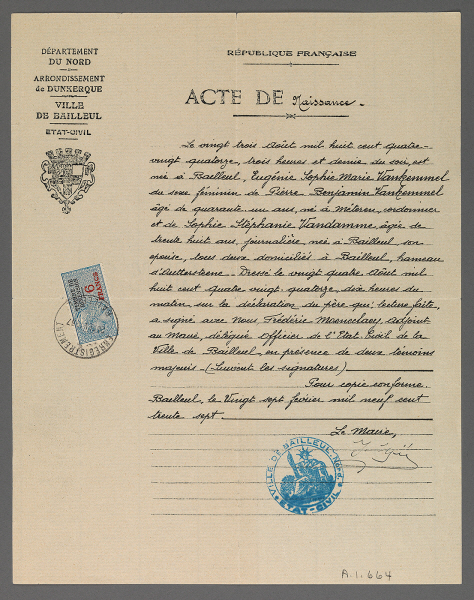 DÉPARTEMENT
DU NORD
ARRONDISSEMENT
de DUNKERQUE
VILLE
DE BAILLEUL
ETAT-CIVIL
RÉPUBLIQUE FRANÇAISE
ACTE DE Naissance.
Le vingt trois Août mil huit cent quatre-
vingt quatorze, trois heures et demie du soir, est
née à Bailleul, Eugénie Sophie Marie Vankemmel
du sexe féminin de Pierre Benjamin Vankemmel
âgé de quarante un ans, né à Méteren, cordonnier
et de Sophie Stéphanie Vandamme âgée de
trente huit ans, journalière née à Bailleul son
épouse, tous deux domiciliés à Bailleul, hameau
d'Outtersteene. Dressé le vingt quatre Août mil
huit cent quatre vingt quatorze, dix heures du
matin sur la déclaration du père qui, lecture faite,
a signé avec Nous Frédéric adjoint
au Maire, délégué Officier de l'Etat Civil de la
Ville de Bailleul, en présence de deux témoins
majeurs. (Suivent les signatures)
Pour copie conforme.
Bailleul, le Vingt sept février mil neuf cent
trente sept.
Le Maire,
VILLE DE BAILLEUL (Nord)
ETAT-CIVIL
6
FRANCS
ENREGISTREMENT
A.1.664